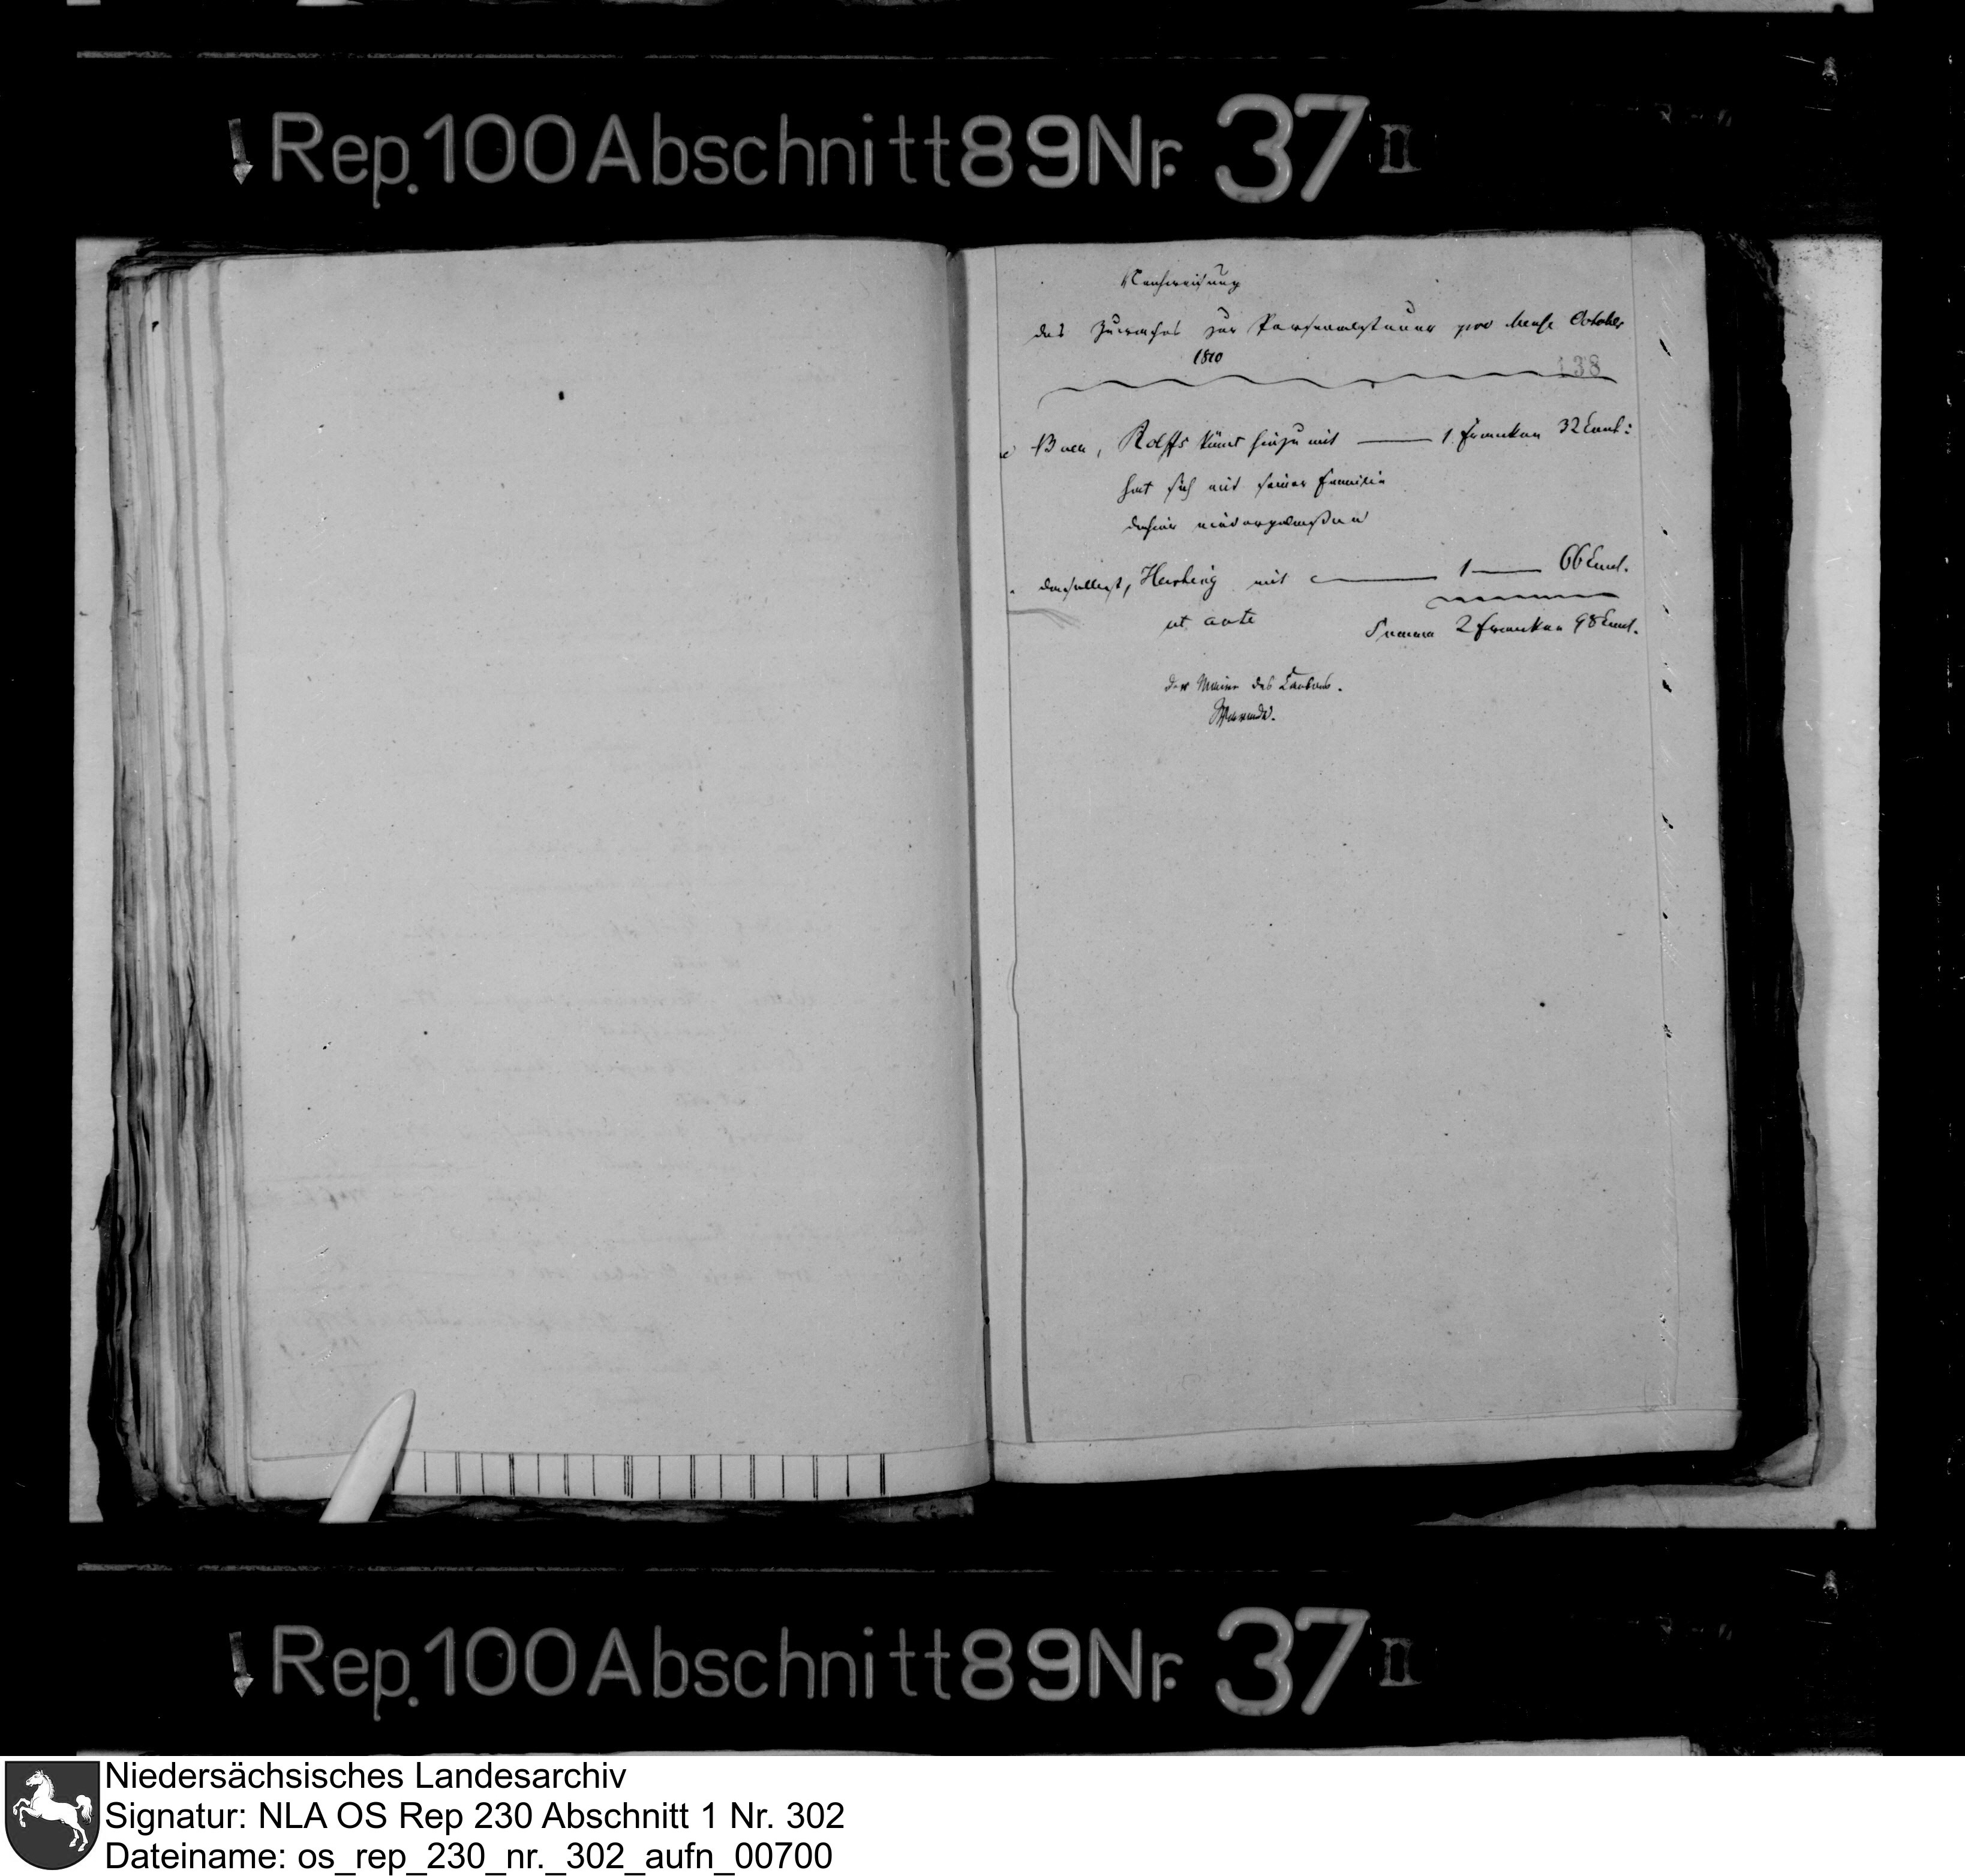 Rep. 100 Abschnitt 89 Nr. 37 II
Nachweisung
des Zuwachses zur Personalsteuer pro Mense October
1810
138
Buer, Rolffs kömt hinzu mit — 1 Franken 32 Cent:
hat sich mit seiner Familie
dahier niedergelaßen
daselbst, Hartwig mit — 1 — 66 Cent.
ut ante
Summa 2 Franken 98 Cent.
Der Maire des Cantons.
Rep. 100 Abschnitt 89 Nr. 37 II
Niedersächsisches Landesarchiv
Signatur: NLA OS Rep 230 Abschnitt 1 Nr. 302
Dateiname: os_rep_230_nr._302_aufn_00700